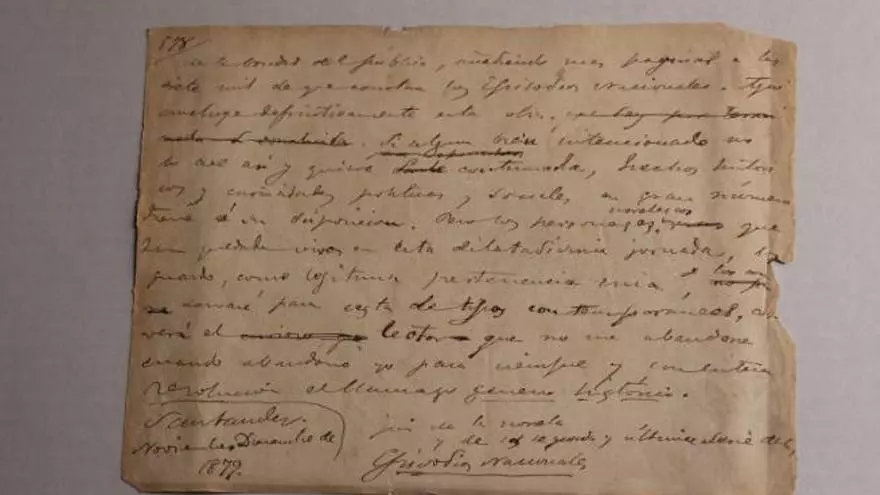 578
la bondad del público, añadiendo más páginas a las
siete mil de que constan los Episodios Nacionales. Aquí
concluye definitivamente esta obra,
Si algún bien intencionado no
lo cree así y quiere continuarla, hechos histór
cos y curiosidades políticas y sociales en gran número
tiene a su disposición. Pero los personages novelescos que
han quedado vivos en esta dilatadísima jornada, los
guardo, como legítima pertenencia mia, y los con
servaré para casta de tipos contemporaneos, como
verá el lector que no me abandone
cuando abandono yo para siempre y con entera
resolución el llamado genero histórico.
Santander.
Noviembre Diciembre de
1879.
fin de la novela
y de la segunda y última serie de los
Episodios Nacionales